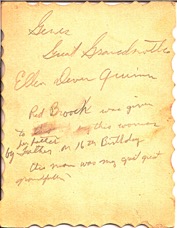 Genes
Great Grandmother
Ellen Dever Quinn
Red Brooch was given
to by this woman
her father
by father on 16th Birthday
This man was my great great
grandfather